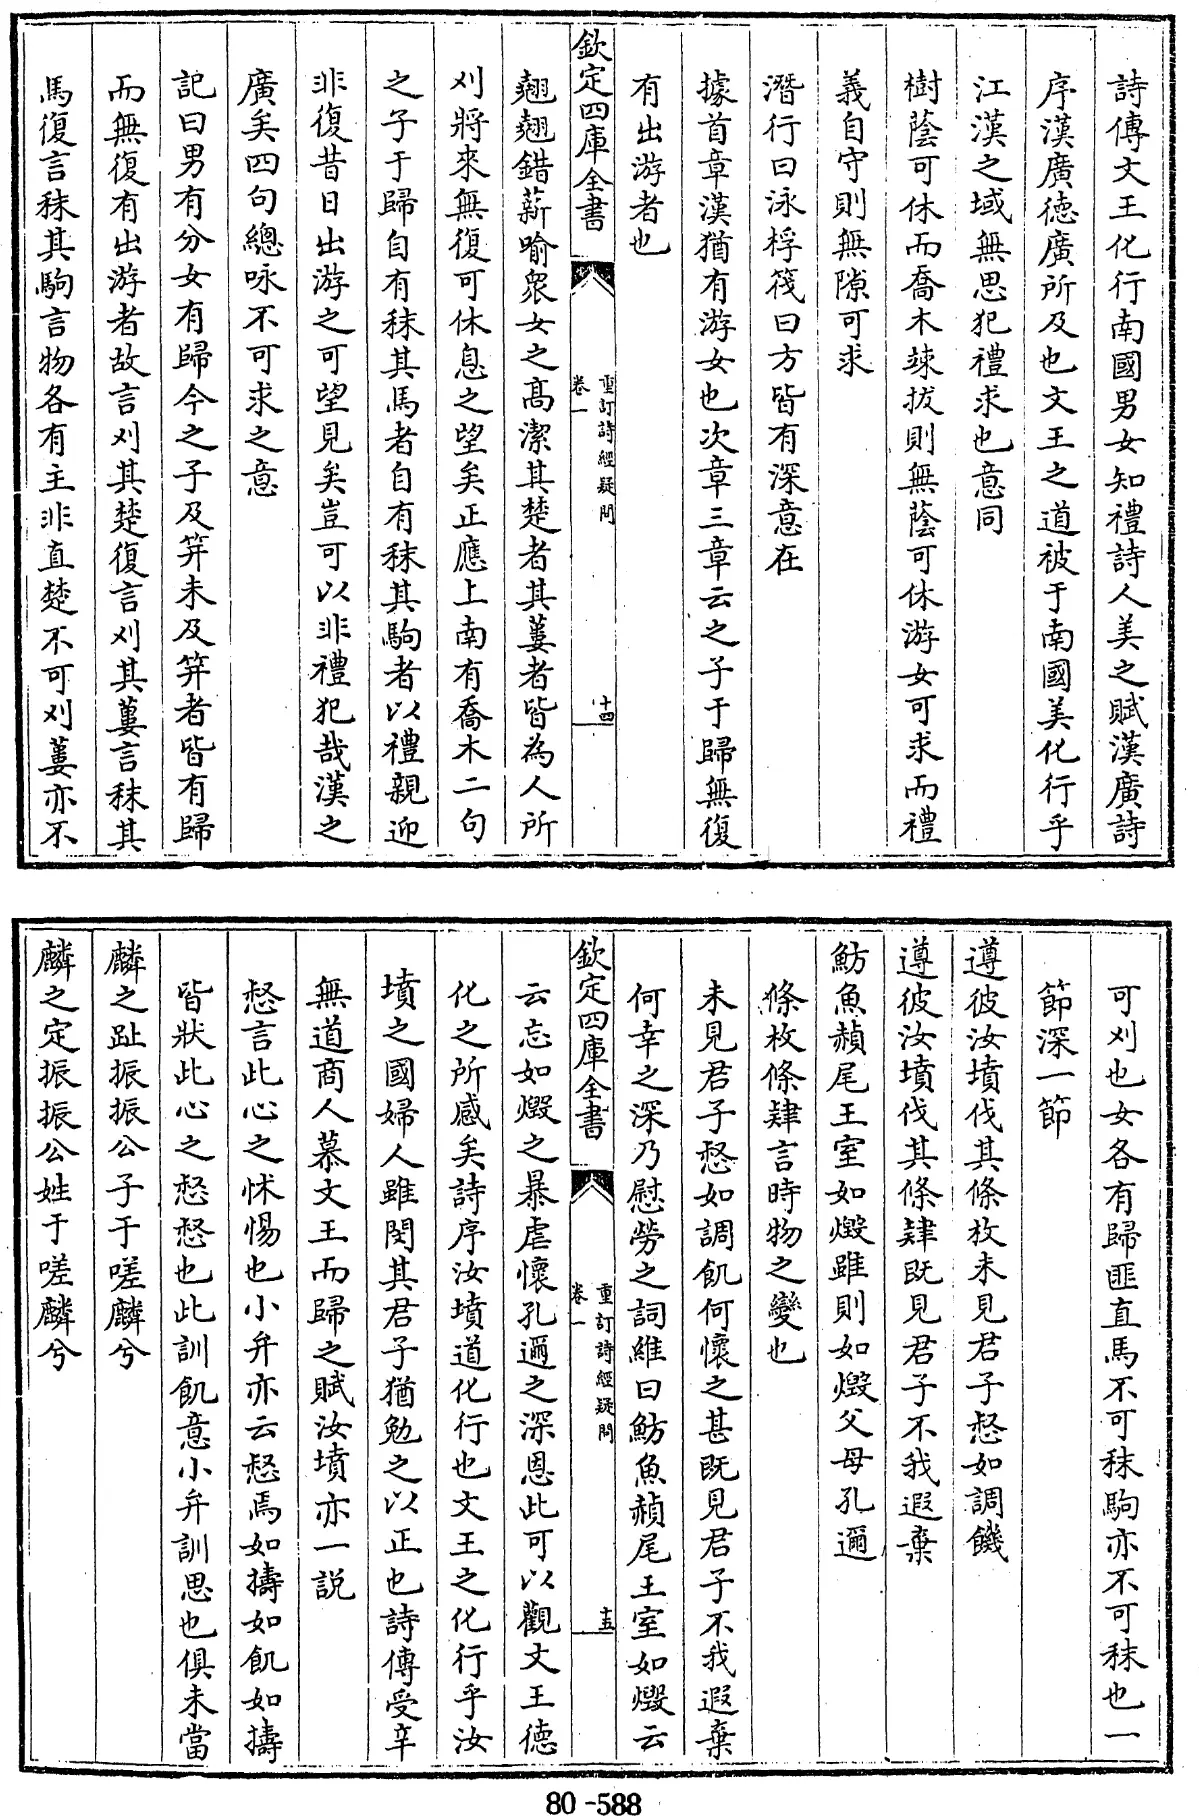 詩傳文王化行南國男女知禮詩人美之賦漢廣詩
序漢廣德廣所及也文王之道被于南國美化行乎
江漢之域無思犯禮求也意同
樹蔭可休而喬木竦拔則無蔭可休游女可求而禮
義自守則無隙可求
潛行曰泳桴筏曰方皆有深意在
據首章漢猶有游女也次章三章云之子于歸無復
有出游者也
欽定四庫全書
重訂詩經疑問
卷一
十四
翹翹錯薪喻衆女之高潔其楚者其蔞者皆為人所
刈將來無復可休息之望矣正應上南有喬木二句
之子于歸自有秣其馬者自有秣其駒者以禮親迎
非復昔日出游之可望見矣豈可以非禮犯哉漢之
廣矣四句總咏不可求之意
記曰男有分女有歸今之子及笄未及笄者皆有歸
而無復有出游者故言刈其楚復言刈其蔞言秣其
馬復言秣其駒言物各有主非直楚不可刈蔞亦不
可刈也女各有歸匪直馬不可秣駒亦不可秣也一
節深一節
遵彼汝墳伐其條枚未見君子惄如調饑
遵彼汝墳伐其條肄既見君子不我遐棄
魴魚赬尾王室如燬雖則如燬父母孔邇
條枚條肄言時物之變也
未見君子惄如調飢何懷之甚既見君子不我遐棄
何幸之深乃慰勞之詞維曰魴魚赬尾王室如燬云
欽定四庫全書
重訂詩經疑問
卷一
十五
云忘如燬之暴虐懷孔邇之深恩此可以觀文王德
化之所感矣詩序汝墳道化行也文王之化行乎汝
墳之國婦人雖閔其君子猶勉之以正也詩傳受辛
無道商人慕文王而歸之賦汝墳亦一說
惄言此心之怵惕也小弁亦云惄焉如擣如飢如擣
皆狀此心之惄惄也此訓飢意小弁訓思也俱未當
麟之趾振振公子于嗟麟兮
麟之定振振公姓于嗟麟兮
80-588